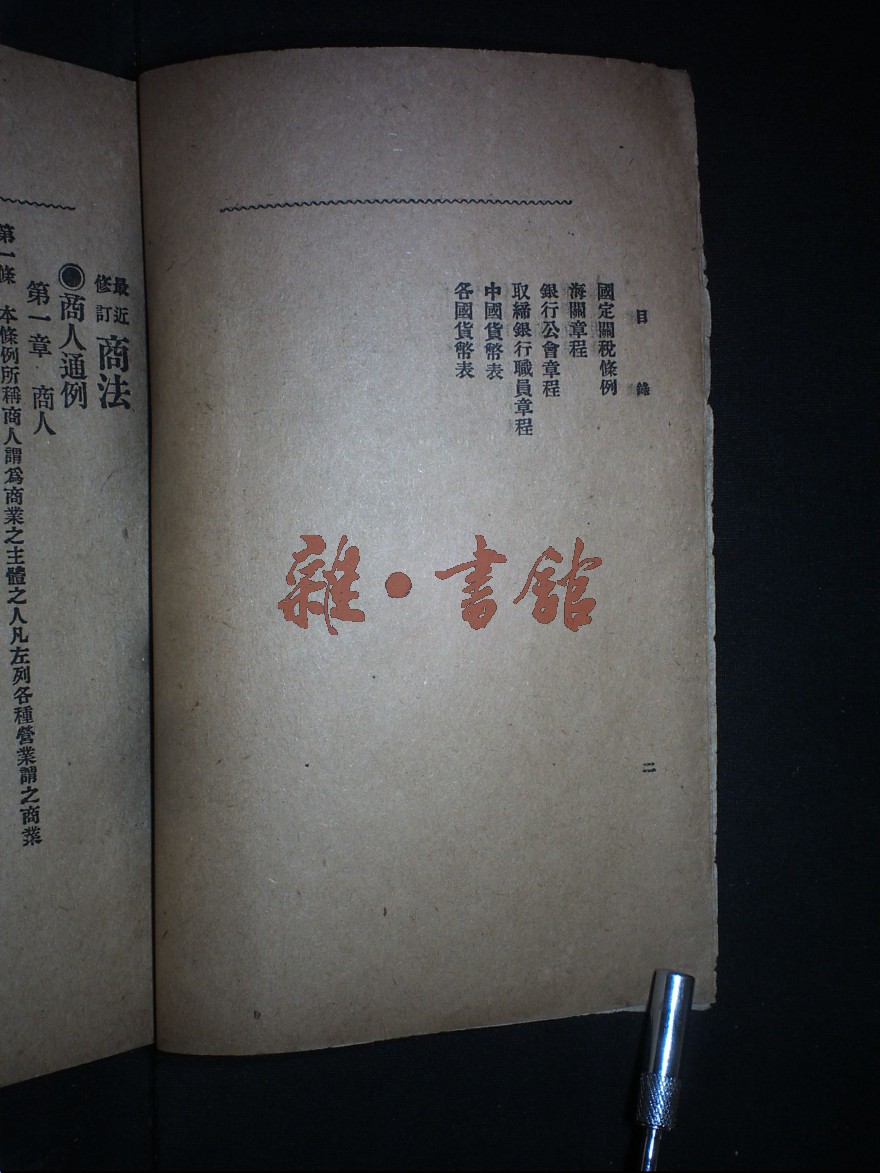 目錄
國定關稅條例
海關章程
銀行公會章程
取締銀行職員章程
中國貨幣表
各國貨幣表
二
雜·書館
最近修訂 商法
◉商人通例
第一章 商人
第一條 本條例所稱商人謂爲商業之主體之人凡左列各種營業謂之商業